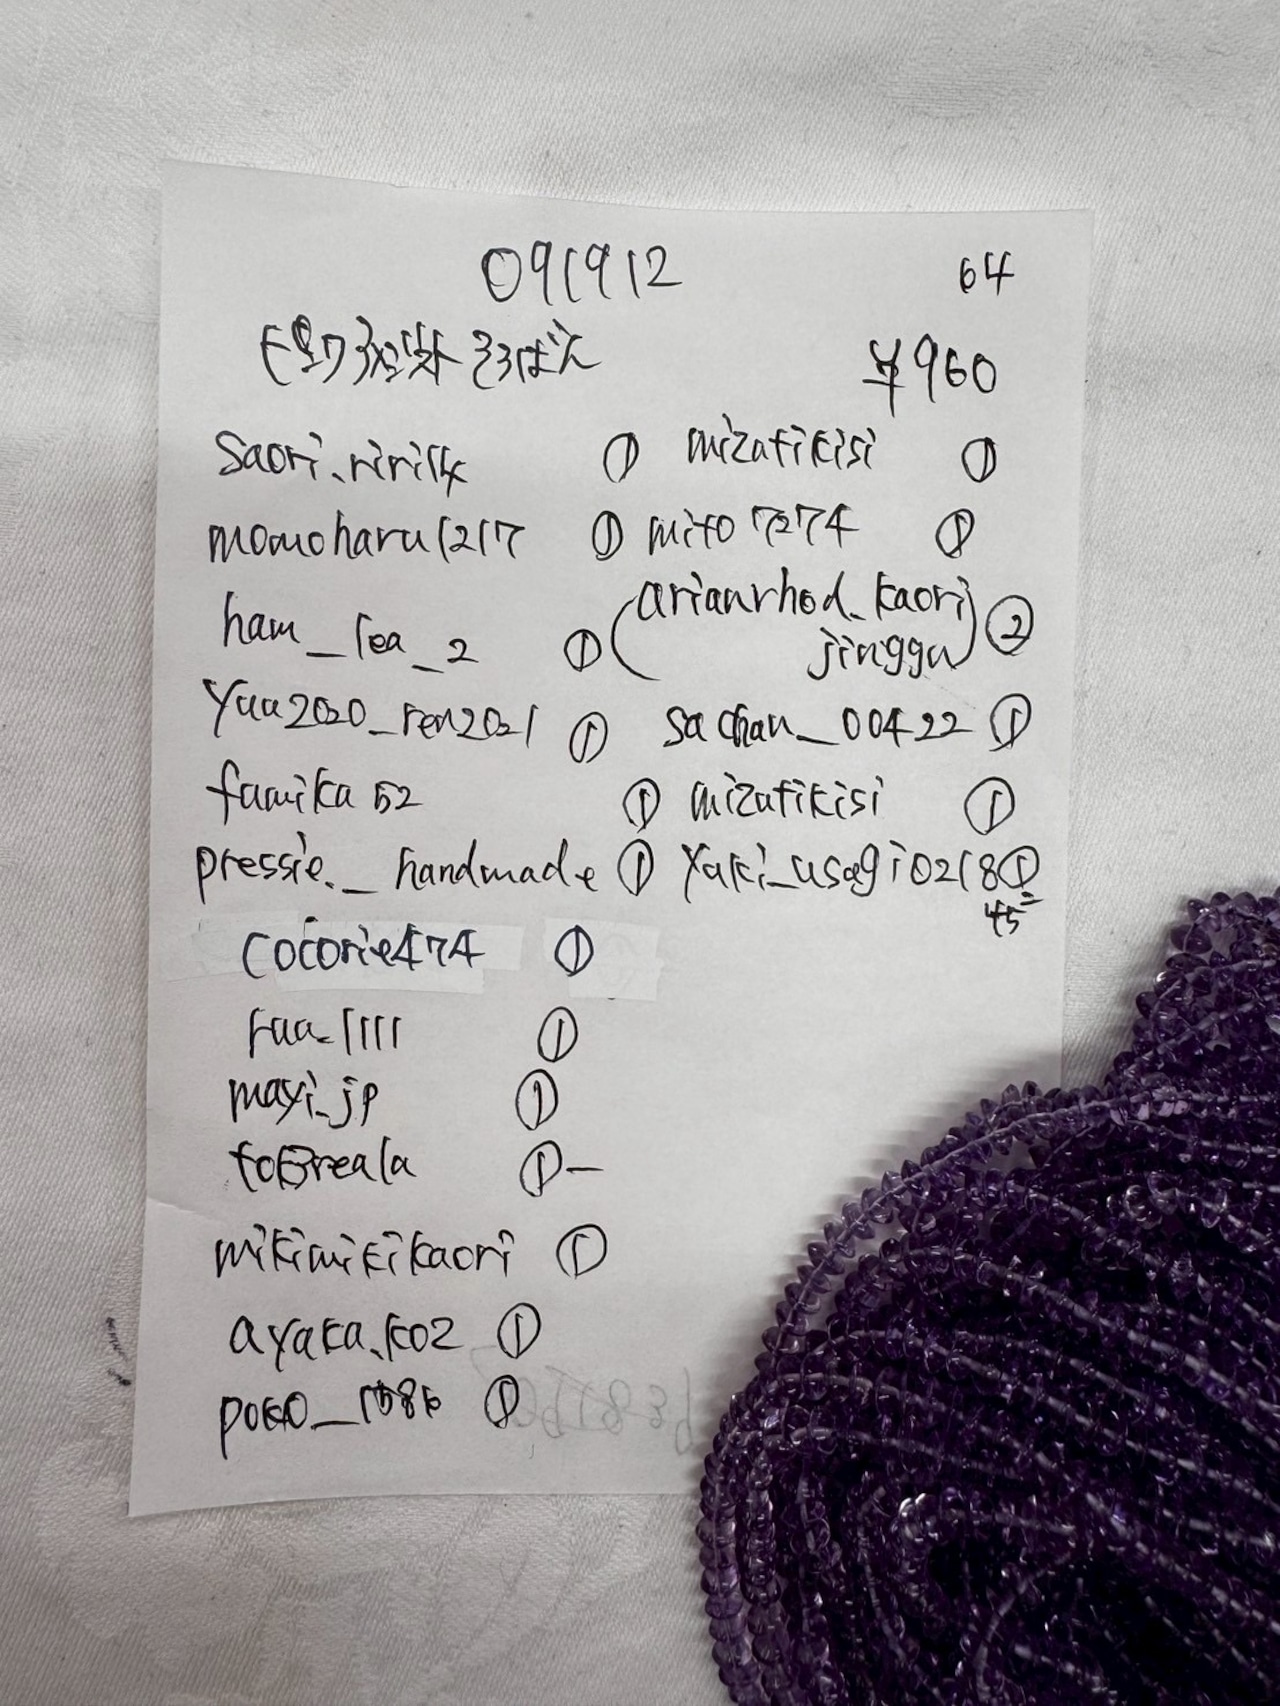 091912 64
そろばん ¥960
Saori.ririly ① mizutikisi ①
momoharu1217 ① mito7274 ①
ham_lea_2 ① (arianrhod_kaori
jinggu) ②
Yuu2020_ren2021 ① sachan_00422 ①
famika52 ① mizutikisi ①
pressie._handmade ① Yuki_usagi0218 ①
45
cocorie474 ①
ruu_1111 ①
mayi_jp ①
①-
mikimikikaori ①
ayaka.ko2 ①
poko_ ①